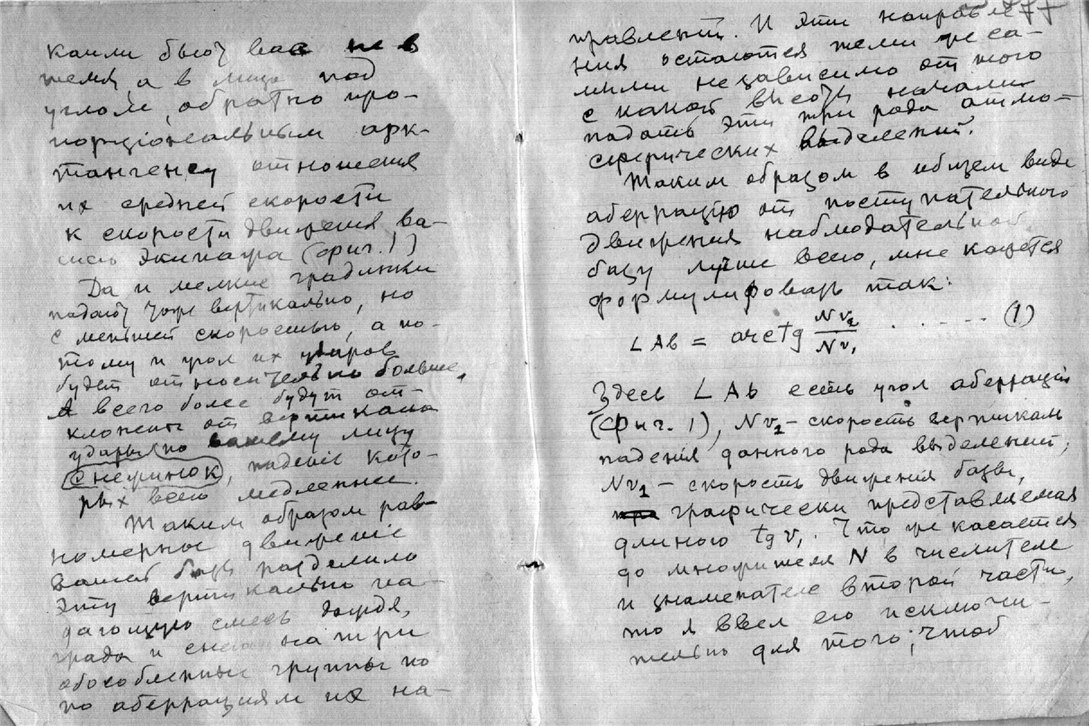 капли бьют вас не в
темя, а в лицо под
углом, обратно про-
порціональным арк-
тангенсу отношения
их средней скорости
к скорости движения ва-
шего экипажа (фиг. 1)
Да и мелкие градинки
падают тоже вертикально, но
с меньшей скоростью, а по-
тому и угол их ударов
будет относительно больше,
А всего более будут от-
клонены от вертикала
удары по вашему лицу
снежинок, паденіе кото-
рых всего медленнее.
Таким образом рав-
номерное движеніе
вашей базы разделило
эту вертикально па-
дающую смесь дождя,
града и снега на три
обособленные группы по
по аберрациям их на-
77
правлений. И эти направле-
ния остаются теми же са-
мыми независимо от того
с какой высоты начали
падать эти три рода атмо-
сферических выделений.
Таким образом в общем виде
аберрацію от поступательного
движения наблюдательной
базы лучше всего, мне кажется
формулировать так:
∠ Ab = arctg Nv₂ / Nv₁ . . . . . (1)
Здесь ∠ Ab есть угол аберраціи
(фиг. 1), Nv₂ – скорость вертикал
падения данного рода выделений;
Nv₁ – скорость движения базы,
графически представляемая
длиною tg v₁. Что же касается
до множителя N в числителе
и знаменателе второй части,
то я ввел его исключи-
тельно для того, чтоб